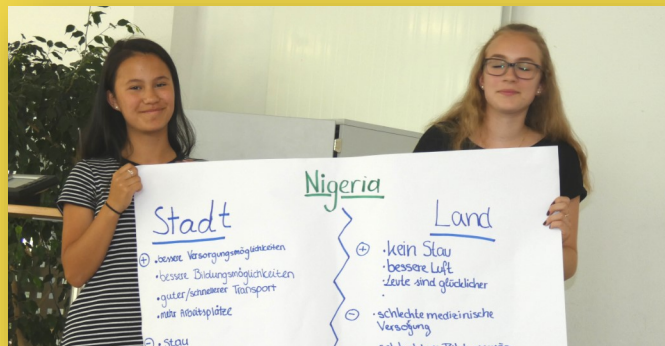 Nigeria
Stadt
+ • bessere Versorgungsmöglichkeiten
• bessere Bildungsmöglichkeiten
• guter/schnellerer Transport
• mehr Arbeitsplätze
- • Stau
Land
+ • kein Stau
• bessere Luft
• Leute sind glücklicher
•
- • schlechte medizinische
Versorgung